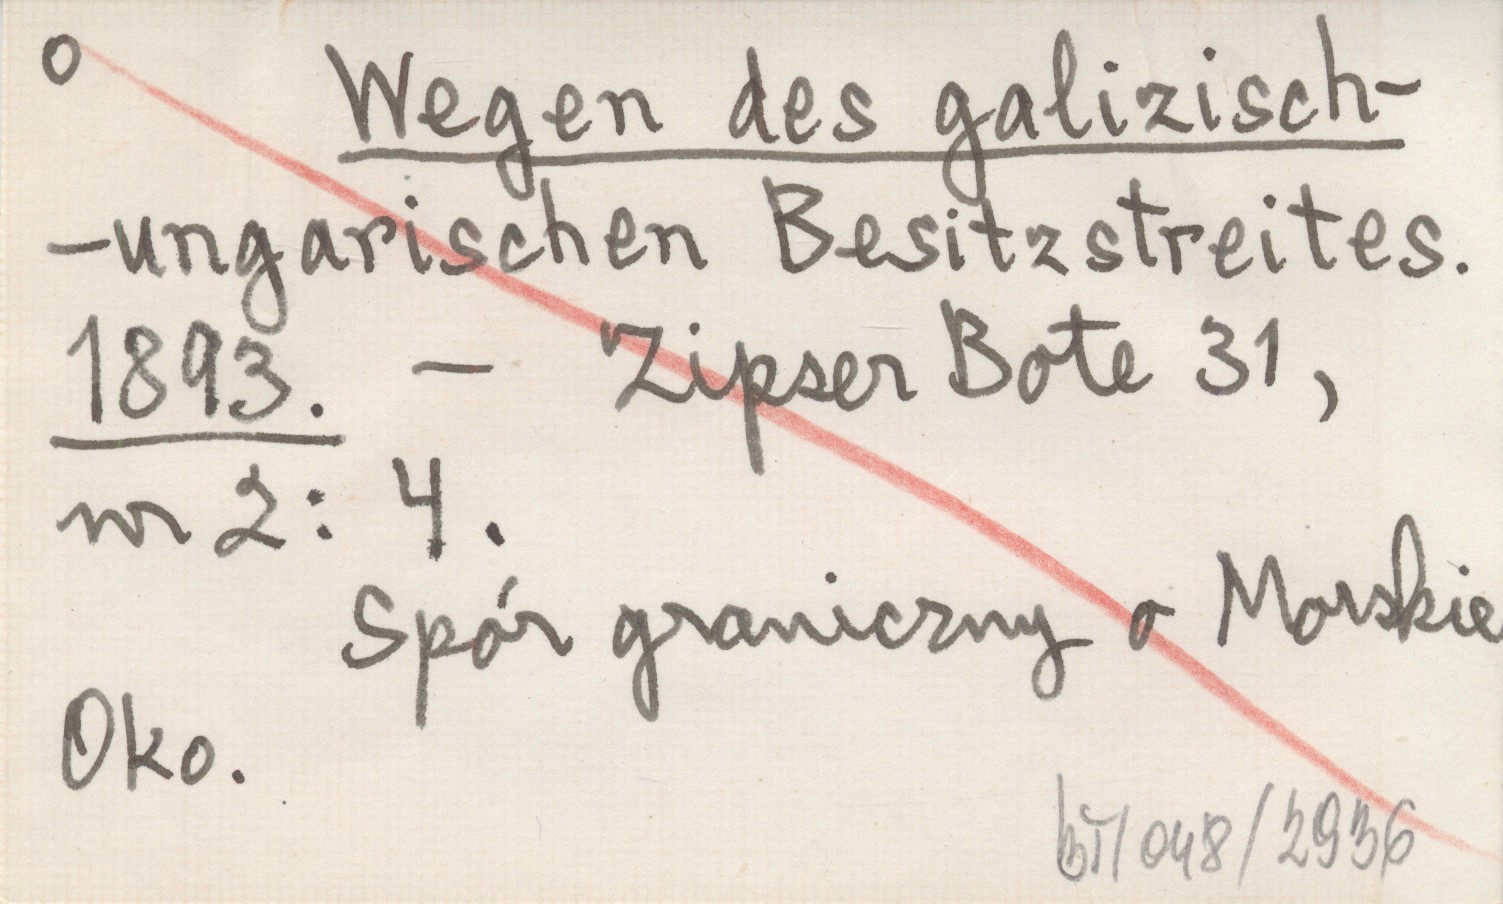 o Wegen des galizisch-
-ungarischen Besitzstreites.
1893. – Zipser Bote 31,
nr 2: 4.
Spór graniczny o Morskie
Oko.
bT/048/2936